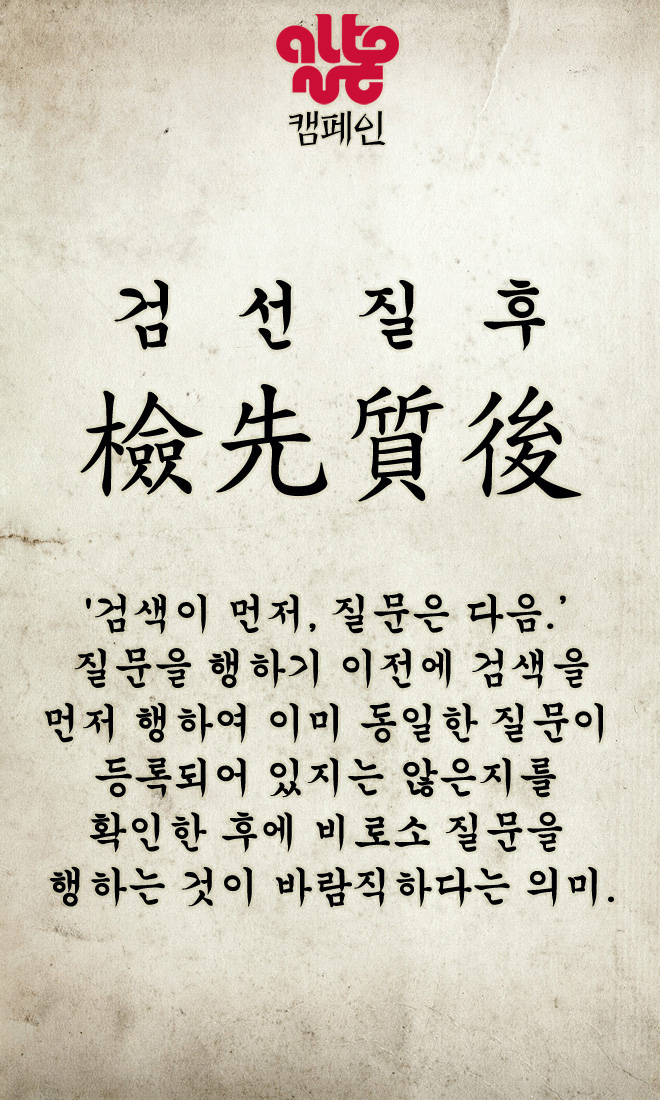 alto
캠페인
검 선 질 후
檢先質後
'검색이 먼저, 질문은 다음.'
질문을 행하기 이전에 검색을
먼저 행하여 이미 동일한 질문이
등록되어 있지는 않은지를
확인한 후에 비로소 질문을
행하는 것이 바람직하다는 의미.